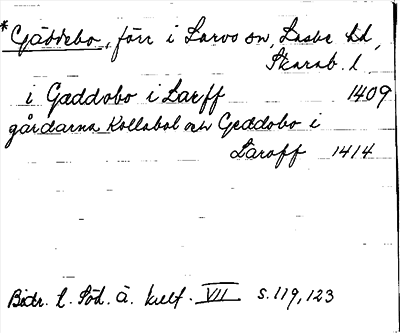 *Gäddebo, förr i Larvs sn, Laske hd,
Skarab. l.
i Gæddobo i Larff 1409
gårdarna Kollabol och Geddobo i
Laroff 1414
Bidr. t. Söd. Å. kult. VII s. 119, 123